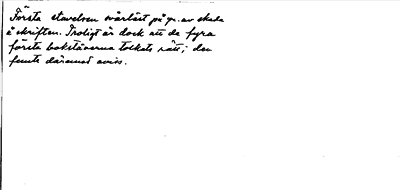 Första stavelsen svårläst på gr. av skada
å skriften. Troligt är dock att de fyra
första bokstäverna tolkats rätt; den
femte däremot oviss.